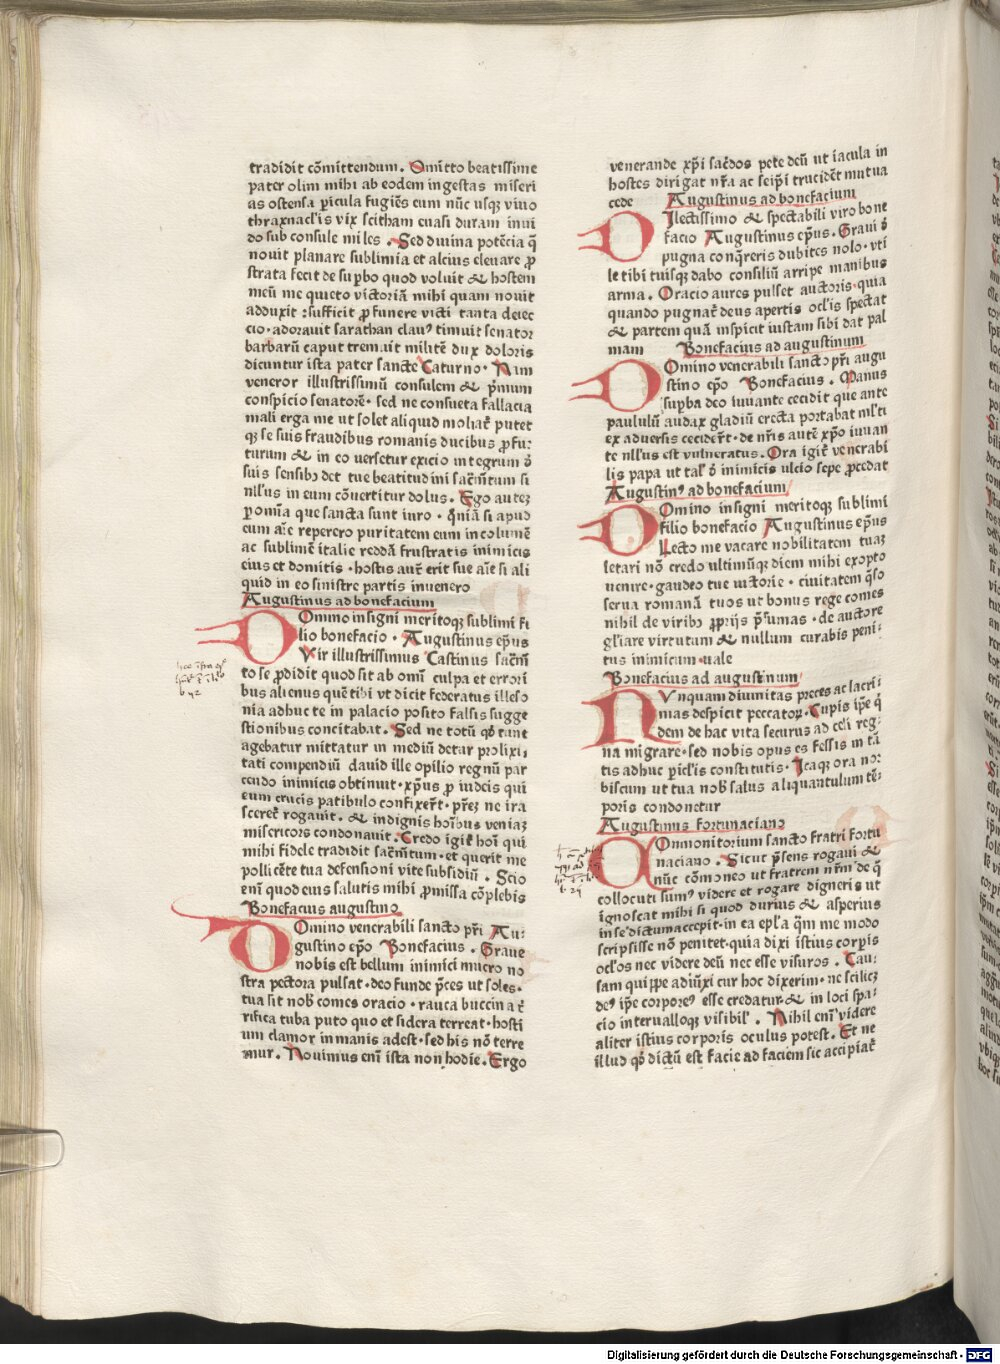 tradidit cõmittendum. Omitto beatissime
pater olim mihi ab eodem ingestas miseri
as ostensa ꝑicula fugiẽs eum nũc usqꝫ viuo
thraxnaclis vix scitham euasi duram inui
do sub consule miles. Sed diuina potẽcia q̃
nouit planare sublimia et alcius eleuare ꝓ
strata fecit de suꝑbo quod voluit & hostem
meũ me quieto victoriã mihi quam nouit
adduxit :sufficit ꝓ funere victi tanta deiec
cio· adorauit sarathan clauꝰ timuit senator
barbarũ caput tremuit militẽ dux doloris
dicuntur ista pater sancte Caturno· Nim
veneror illustrissimũ consulem & p̃mum
conspicio senatorẽ· sed ne consueta fallacia
mali erga me ut solet aliquid moliat᷑ putet
qꝫ se suis fraudibus romanis ducibus ꝓfu-
turum & in eo versetur exicio integrum õ
suis sensibꝫ det tue beatitudini sacr̃mtum si
nulꝰus in eum cõuertitur dolus. Ego autez
ꝑ omĩa que sancta sunt iuro· qm̃iã si apud
eum aĩe reperero puritatem eum in columẽ
ac sublimẽ italie reddã frustratis inimicis
eius et domitis· hostis aut᷑ erit sue aĩe si ali
quid in eo sinistre partis inuenero
Augustinus ad bonefacium
DOmino insigni meritoqꝫ sublimi fi
lio bonefacio. Augustinus ep̃us
Vir illustrissimus Castinus sacr̃m
to se ꝓdidit quod sit ab omĩ culpa et errori
bus alienus quẽ tibi vt dicit federatus illeso
nia adhuc te in palacio posito falsis sugge
stionibus concitabat. Sed ne totũ qd̾ tunt
agebatur mittatur in mediũ detur prolixi-
tati compendiũ dauid ille opilio regnũ par
cendo inimicis obtinuit· xp̃us ꝓ iudeis qui
eum crucis patibulo confixert᷑· p̃rez ne ira
sceret᷑ rogauit. & indignis hoĩbus veniaz
misericors condonauit. Credo igit᷑ hoĩ qui
mihi fidele tradidit sacr̃mtum· et querit me
pollicẽte tua defensioni vite subsidiũ. Scio
eni᷑ quod eius salutis mihi ꝓmissa cõplebis
Bonefacius augustino
DOmino venerabili sancto p̃ri Au-
gustino ep̃o Bonefacius. Graue
nobis est bellum inimici mucro no
stra pectora pulsat· deo funde p̃ces ut soles·
tua sit nob̾ comes oracio· rauca buccina t᷑
rifica tuba puto quo et sidera terreat· hosti
um clamor inmanis adest· sed his nõ terre
mur. Nouimus eni᷑ ista non hodie. Ergo
venerande xp̃i sac̃dos pete deũ ut iacula in
hostes dirigat nr̃a ac seip̃i trucidẽt mutua
cede
Augustinus ad bonefacium
DIlectissimo & spectabili viro bone
facio Augustinus ep̃us. Graui õ
pugna conq̃reris dubites nolo· vti
le tibi tuisqꝫ dabo consiliũ arripe manibus
arma. Oracio aures pulset auctoris· quia
quando pugnat᷑ deus apertis oclis spectat
& partem quã inspicit iustam sibi dat pal
mam
Bonefacius ad augustinum
DOmino venerabili sancto p̃ri augu
stino ep̃o Bonefacius. Manus
suꝑba deo iuuante cecidit que ante
paululũ audax gladiũ erecta portabat ml̾ti
ex aduersis cecidert᷑· de nr̃is autẽ xp̃o iuuan
te nllꝰus est vulneratus. Ora igit᷑ venerabi
lis papa ut tal̾ õ inimicis ulcio sepe ꝓcedat
Augustinꝰ ad bonefacium
DOmino insigni meritoqꝫ sublimi
filio bonefacio Augustinus ep̃us
Lecto me vacare nobilitatem tuaz
letari nõ credo ultimũqꝫ diem mihi exopto
uenire· gaudeo tue uictorie· ciuitatem q̃so
serua romanã tuos ut bonus rege comes
nihil de viribꝫ ꝓprijs p̃sumas· de auctore
gl̃iare virtutum & nullum curabis peni-
tus inimicum· uale
Bonefacius ad augustinum
NVnquam diuinitas preces ac lacri-
mas despicit peccatoꝝ· Cupis ip̃e q̃
dem de hac vita securus ad celi reg-
na migrare· sed nobis opus es fessis in tã
tis adhuc ꝑiclis constitutis. Itaqꝫ ora no-
biscum ut tua nob̾ salus aliquantulum tẽ-
poris condonetur
Augustinus fortunaciano
COmmonitorium sancto fratri fortu
naciano. Sicut p̃sens rogaui &
nũc cõmoneo ut fratrem nr̃m de q̃
collocuti sumꝰ videre et rogare digneris ut
ignoscat mihi si quod durius & asperius
in se dictum accepit· in ea ep̃la q̃m me modo
scripsisse nõ penitet· quia dixi istius corp̃is
oclos nec videre deũ nec esse visuros. Cau-
sam quippe adiũxi cur hoc dixerim· ne scilicꝫ
deꝰ ip̃e corporeꝰ esse credatur· & in loci spa-
cio interualloqꝫ visibil̾. Nihil eni᷑ videre
aliter istius corporis oculus potest. Et ne
illud qd̾ dictũ est facie ad faciem sic accipiat᷑
Digitalisierung gefördert durch die Deutsche Forschungsgemeinschaft - DFG